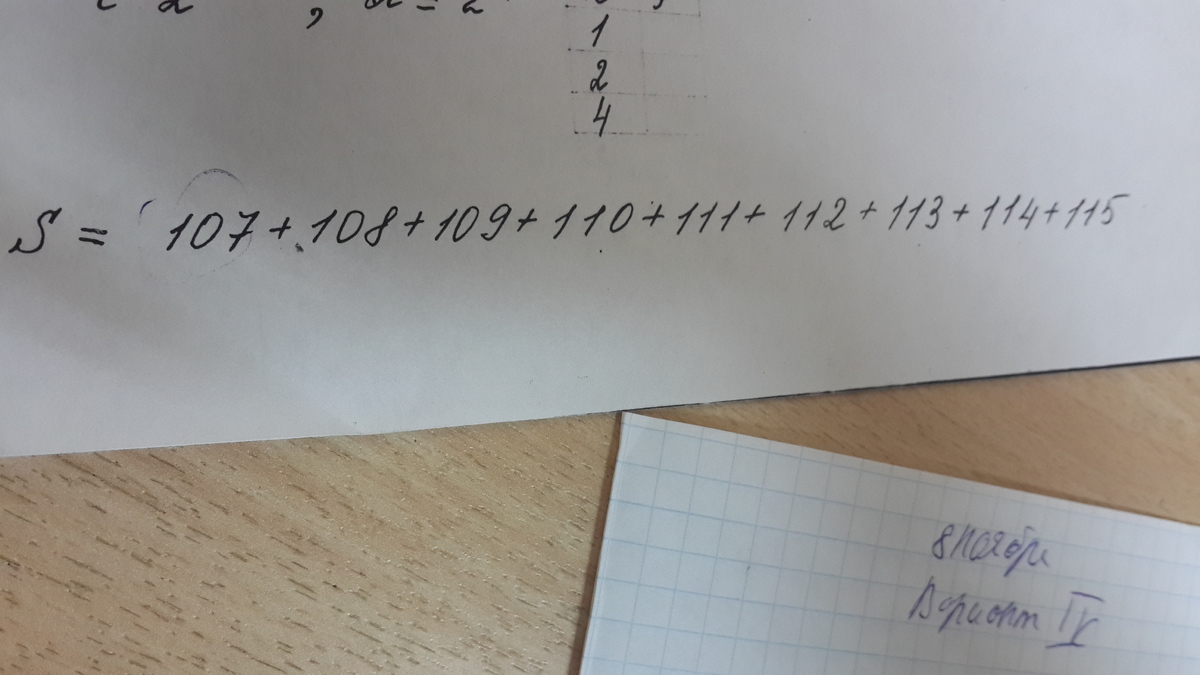 1
2
4
S = 107 + 108 + 109 + 110 + 111 + 112 + 113 + 114 + 115
8 ноября
Вариант IV